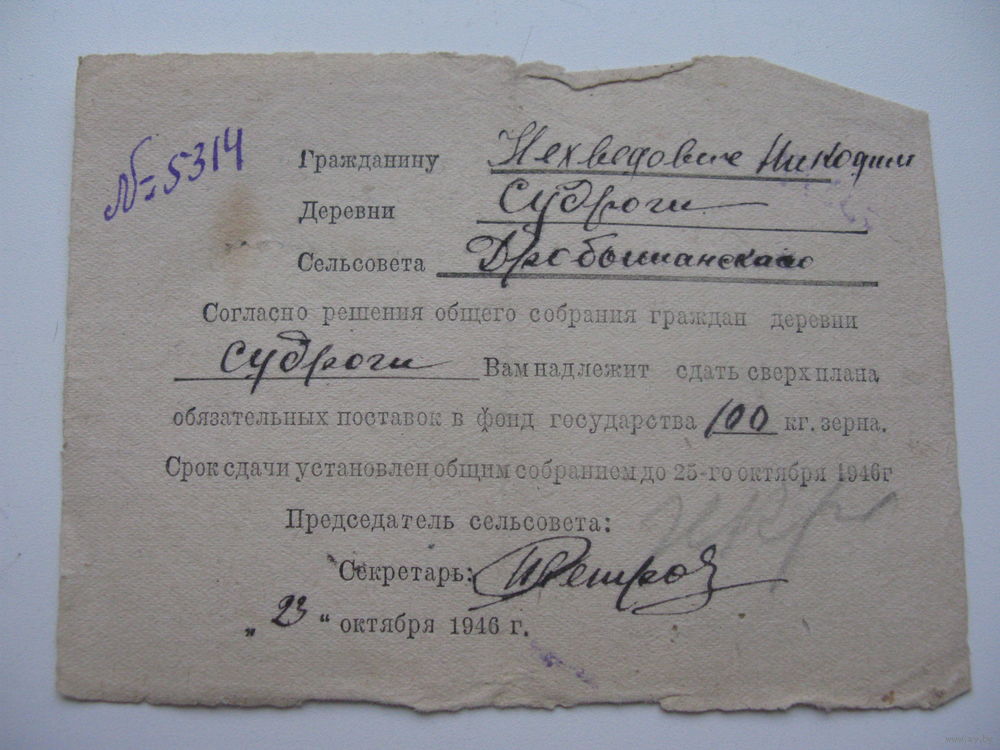 № 5314
Гражданину Нехведович Никодим
Деревни Судроги
Сельсовета Дробышанского
Согласно решения общего собрания граждан деревни
Судроги Вам надлежит сдать сверх плана
обязательных поставок в фонд государства 100 кг. зерна.
Срок сдачи установлен общим собранием до 25-го октября 1946г
Председатель сельсовета:
Секретарь: Петров
„23“ октября 1946 г.